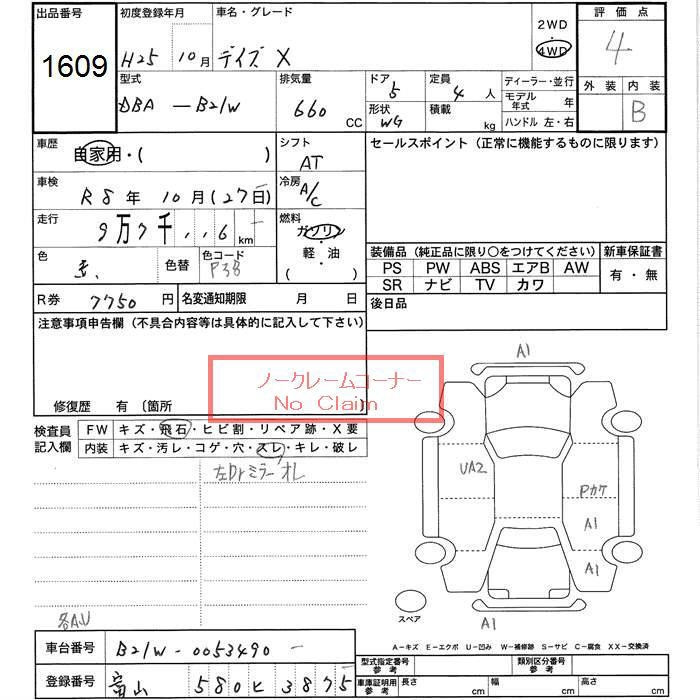 出品番号 初度登録年月 車名・グレード 2WD 4WD 評価点
1609 H25 10月 デイズ X 4
型式 排気量 ドア 5 定員 4人 ディーラー・並行 外装 内装
DBA - B21W 660 CC 形状 WG 積載 kg モデル年式 年 B
ハンドル 左・右
車歴 自家用・( ) シフト AT セールスポイント (正常に機能するものに限ります)
車検 R8年 10月(27日) 冷房 A/C
走行 9万7千,,6 km 燃料 ガソリン
軽・油
( )
色 色替 色コード P3B
装備品 (純正品に限り〇をつけてください) 新車保証書
PS PW ABS エアB AW 有・無
SR ナビ TV カワ
R券 7750円 名変通知期限 月 日 後日品
注意事項申告欄 (不具合内容等は具体的に記入して下さい)
ノークレームコーナー
No Claim
修復歴 有 〔箇所 〕
検査員 記入欄 FW キズ・飛石・ヒビ割・リペア跡・X要
内装 キズ・汚レ・コゲ・穴・スレ・キレ・破レ
左Drミラーオレ
A1
UA2
Pカケ
A1
A1
スペア
A1
各AU
A-キズ E-エクボ U-凹み W-補修跡 S-サビ C-腐食 XX-交換済
車台番号 B21W-0053490
型式指定番号 参考 類別区分番号 参考
登録番号 富山 580 ヒ 3875
車庫証明用 参考 長さ cm 幅 cm 高さ cm